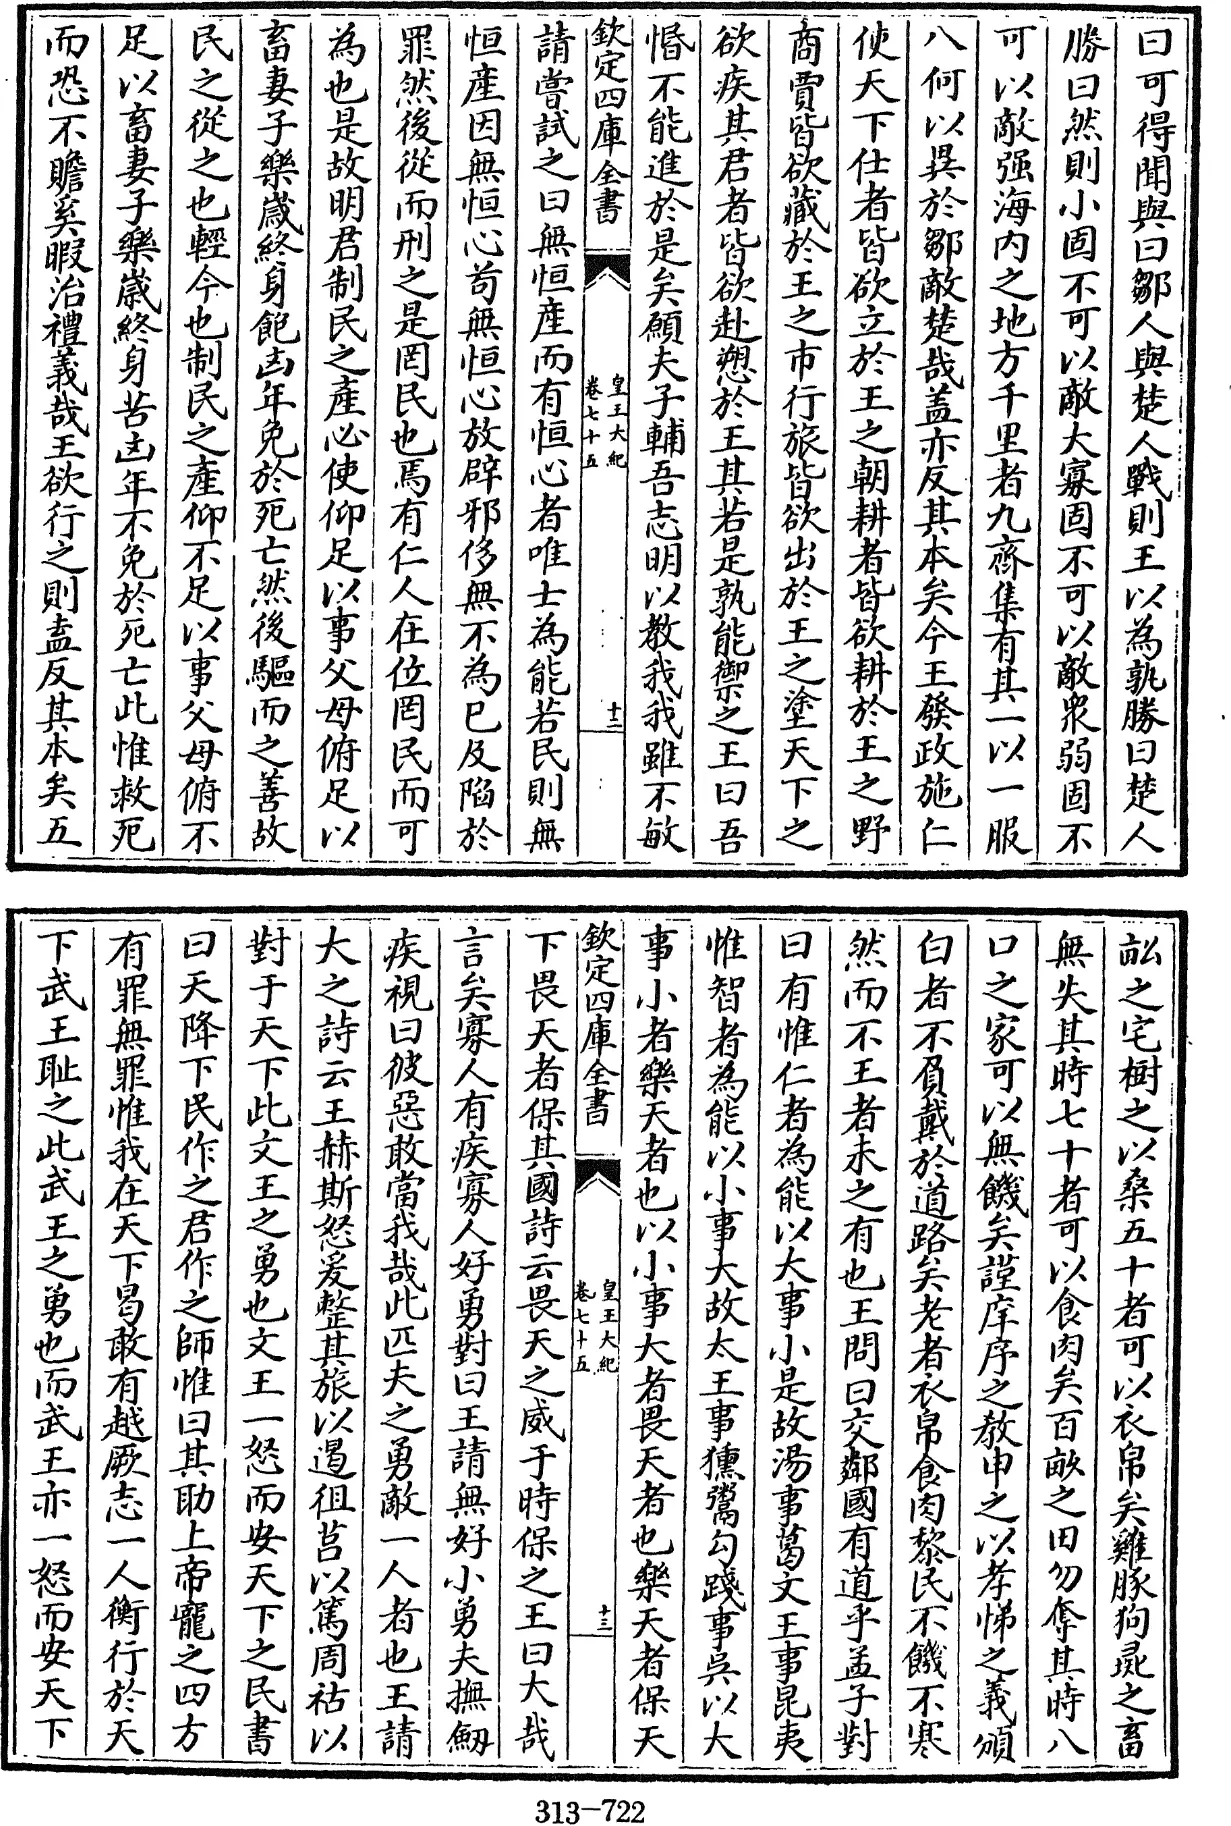 曰可得聞與曰鄒人與楚人戰則王以為孰勝曰楚人
勝曰然則小固不可以敵大寡固不可以敵衆弱固不
可以敵强海内之地方千里者九齊集有其一以一服
八何以異於鄒敵楚哉盖亦反其本矣今王發政施仁
使天下仕者皆欲立於王之朝耕者皆欲耕於王之野
商賈皆欲藏於王之市行旅皆欲出於王之塗天下之
欲疾其君者皆欲赴愬於王其若是孰能禦之王曰吾
惛不能進於是矣願夫子輔吾志明以教我我雖不敏
欽定四庫全書
皇王大紀
卷七十五
十二
請嘗試之曰無恒産而有恒心者唯士為能若民則無
恒産因無恒心苟無恒心放辟邪侈無不為已及陷於
罪然後從而刑之是罔民也焉有仁人在位罔民而可
為也是故明君制民之產必使仰足以事父母俯足以
畜妻子樂歲終身飽凶年免於死亡然後驅而之善故
民之從之也輕今也制民之產仰不足以事父母俯不
足以畜妻子樂歲終身苦凶年不免於死亡此惟救死
而恐不贍奚暇治禮義哉王欲行之則盍反其本矣五
畝之宅樹之以桑五十者可以衣帛矣雞豚狗彘之畜
無失其時七十者可以食肉矣百畝之田勿奪其時八
口之家可以無饑矣謹庠序之教申之以孝悌之義頒
白者不負戴於道路矣老者衣帛食肉黎民不饑不寒
然而不王者未之有也王問曰交鄰國有道乎孟子對
曰有惟仁者為能以大事小是故湯事葛文王事昆夷
惟智者為能以小事大故太王事獯鬻勾踐事吳以大
事小者樂天者也以小事大者畏天者也樂天者保天
欽定四庫全書
皇王大紀
卷七十五
十三
下畏天者保其國詩云畏天之威于時保之王曰大哉
言矣寡人有疾寡人好勇對曰王請無好小勇夫撫劒
疾視曰彼惡敢當我哉此匹夫之勇敵一人者也王請
大之詩云王赫斯怒爰整其旅以遏徂莒以篤周祜以
對于天下此文王之勇也文王一怒而安天下之民書
曰天降下民作之君作之師惟曰其助上帝寵之四方
有罪無罪惟我在天下曷敢有越厥志一人衡行於天
下武王恥之此武王之勇也而武王亦一怒而安天下
313-722